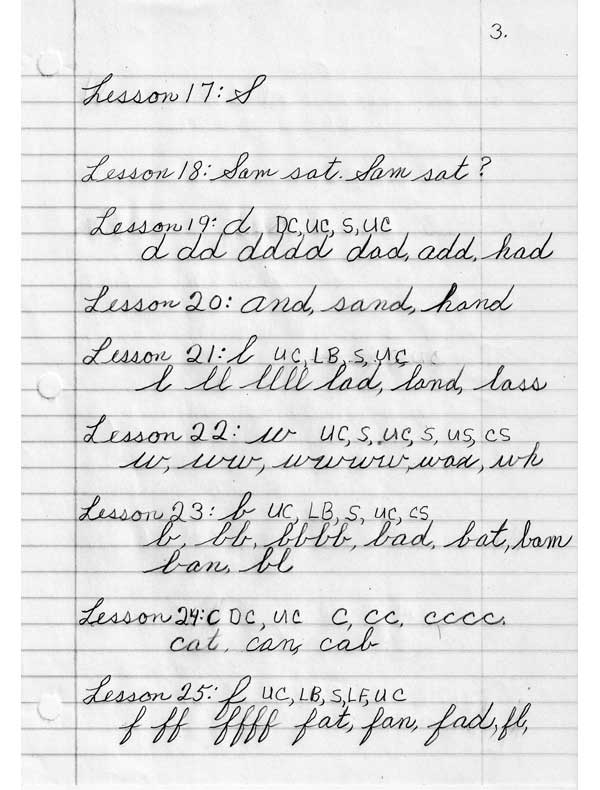 3.
Lesson 17: S
Lesson 18: Sam sat. Sam sat?
Lesson 19: d DC, UC, S, UC
d dd dddd dad, add, had
Lesson 20: and, sand, hand
Lesson 21: l UC, LB, S, UC
l ll llll lad, land, lass
Lesson 22: w UC, S, UC, S, US, CS
w, ww, wwwww, wad, wh
Lesson 23: b UC, LB, S, UC, CS
b, bb, bbbb, bad, bat, bam
ban, bl
Lesson 24: c DC, UC C, CC, cccc,
cat, can, cab
Lesson 25: f UC, LB, S, LF, UC
f ff ffff fat, fan, fad, fl,